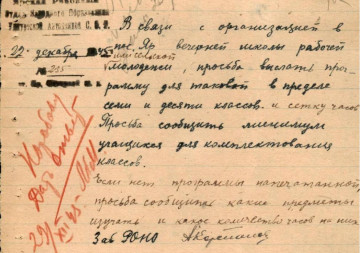 отдел Народного Образования
Удмуртской Автономной С.С.Р.
22 декабря 45
№ 295
В связи с организацией в
пос. Яр вечерней школы рабочей
молодежи, просьба выслать про-
грамму для таковой в пределе
семи и десяти классов. и сетку часов
Просьба сообщить минимум
учащихся для комплектования
классов.
Если нет программы напечатанной
просьба сообщить какие предметы
изучать и какое количество часов на них
Зав РОНО
Дать ответ
29/XII-45